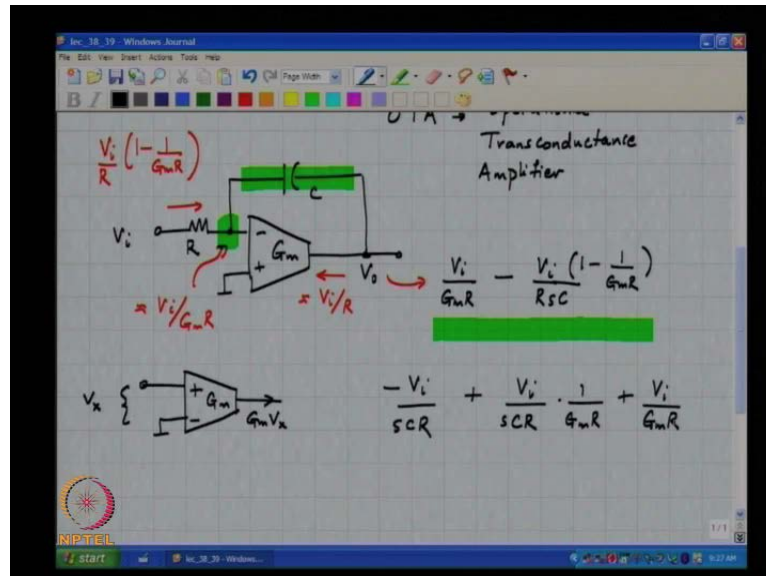 lec_38_39 - Windows Journal
File Edit View Insert Actions Tools Help
Page Width
B I
OTA → Operational
Transconductance
Amplifier
Vi/R (1 - 1/GmR)
C
Vi
R
-
+
Gm
V0
≈ Vi/GmR
≈ Vi/R
Vi/GmR - Vi/RsC (1 - 1/GmR)
Vx {
+
-
Gm
GmVx
-Vi/sCR + Vi/sCR · 1/GmR + Vi/GmR
1/1
NPTEL
start
lec_38_39 - Windows...
9:27 AM